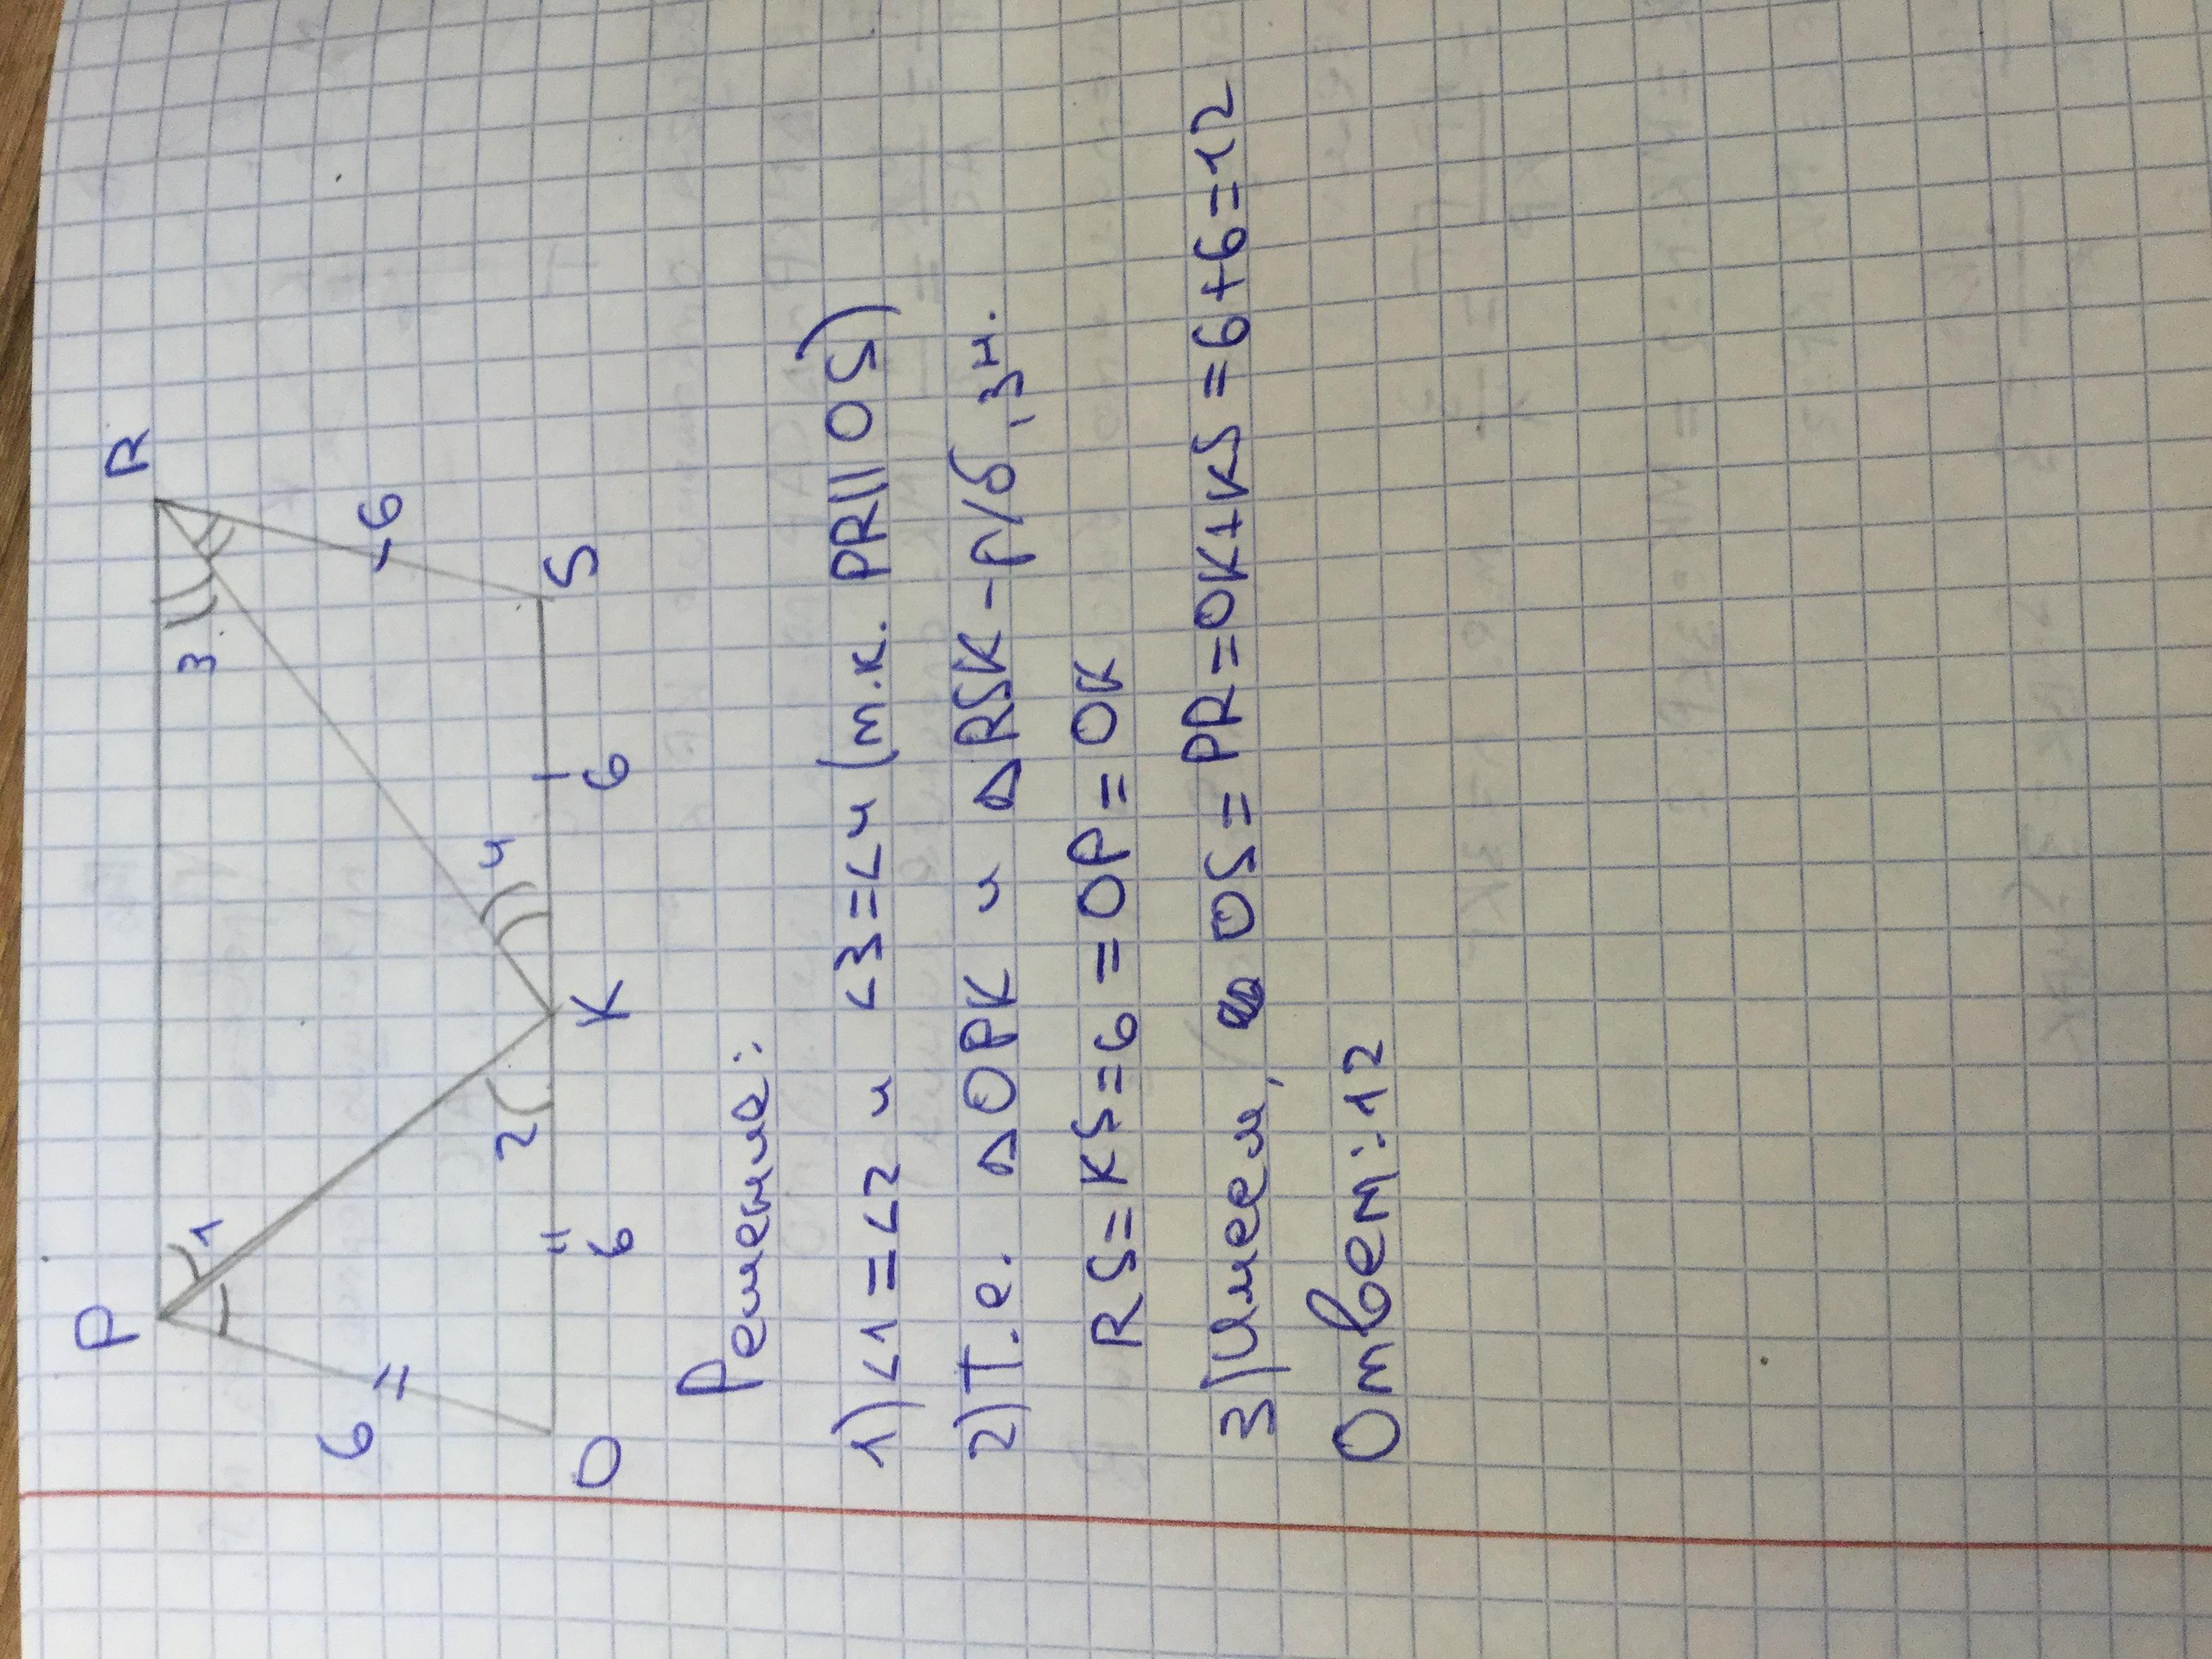 P
R
1
3
6
6
2
4
O
6
K
6
S
Решение:
1) ∠1=∠2 и ∠3=∠4 (т.к. PR||OS)
2) Т.е. ΔOPK и ΔRSK – р/б, зн.
RS=KS=6=OP=OK
3) Имеем, OS=PR=OK+KS=6+6=12
Ответ: 12